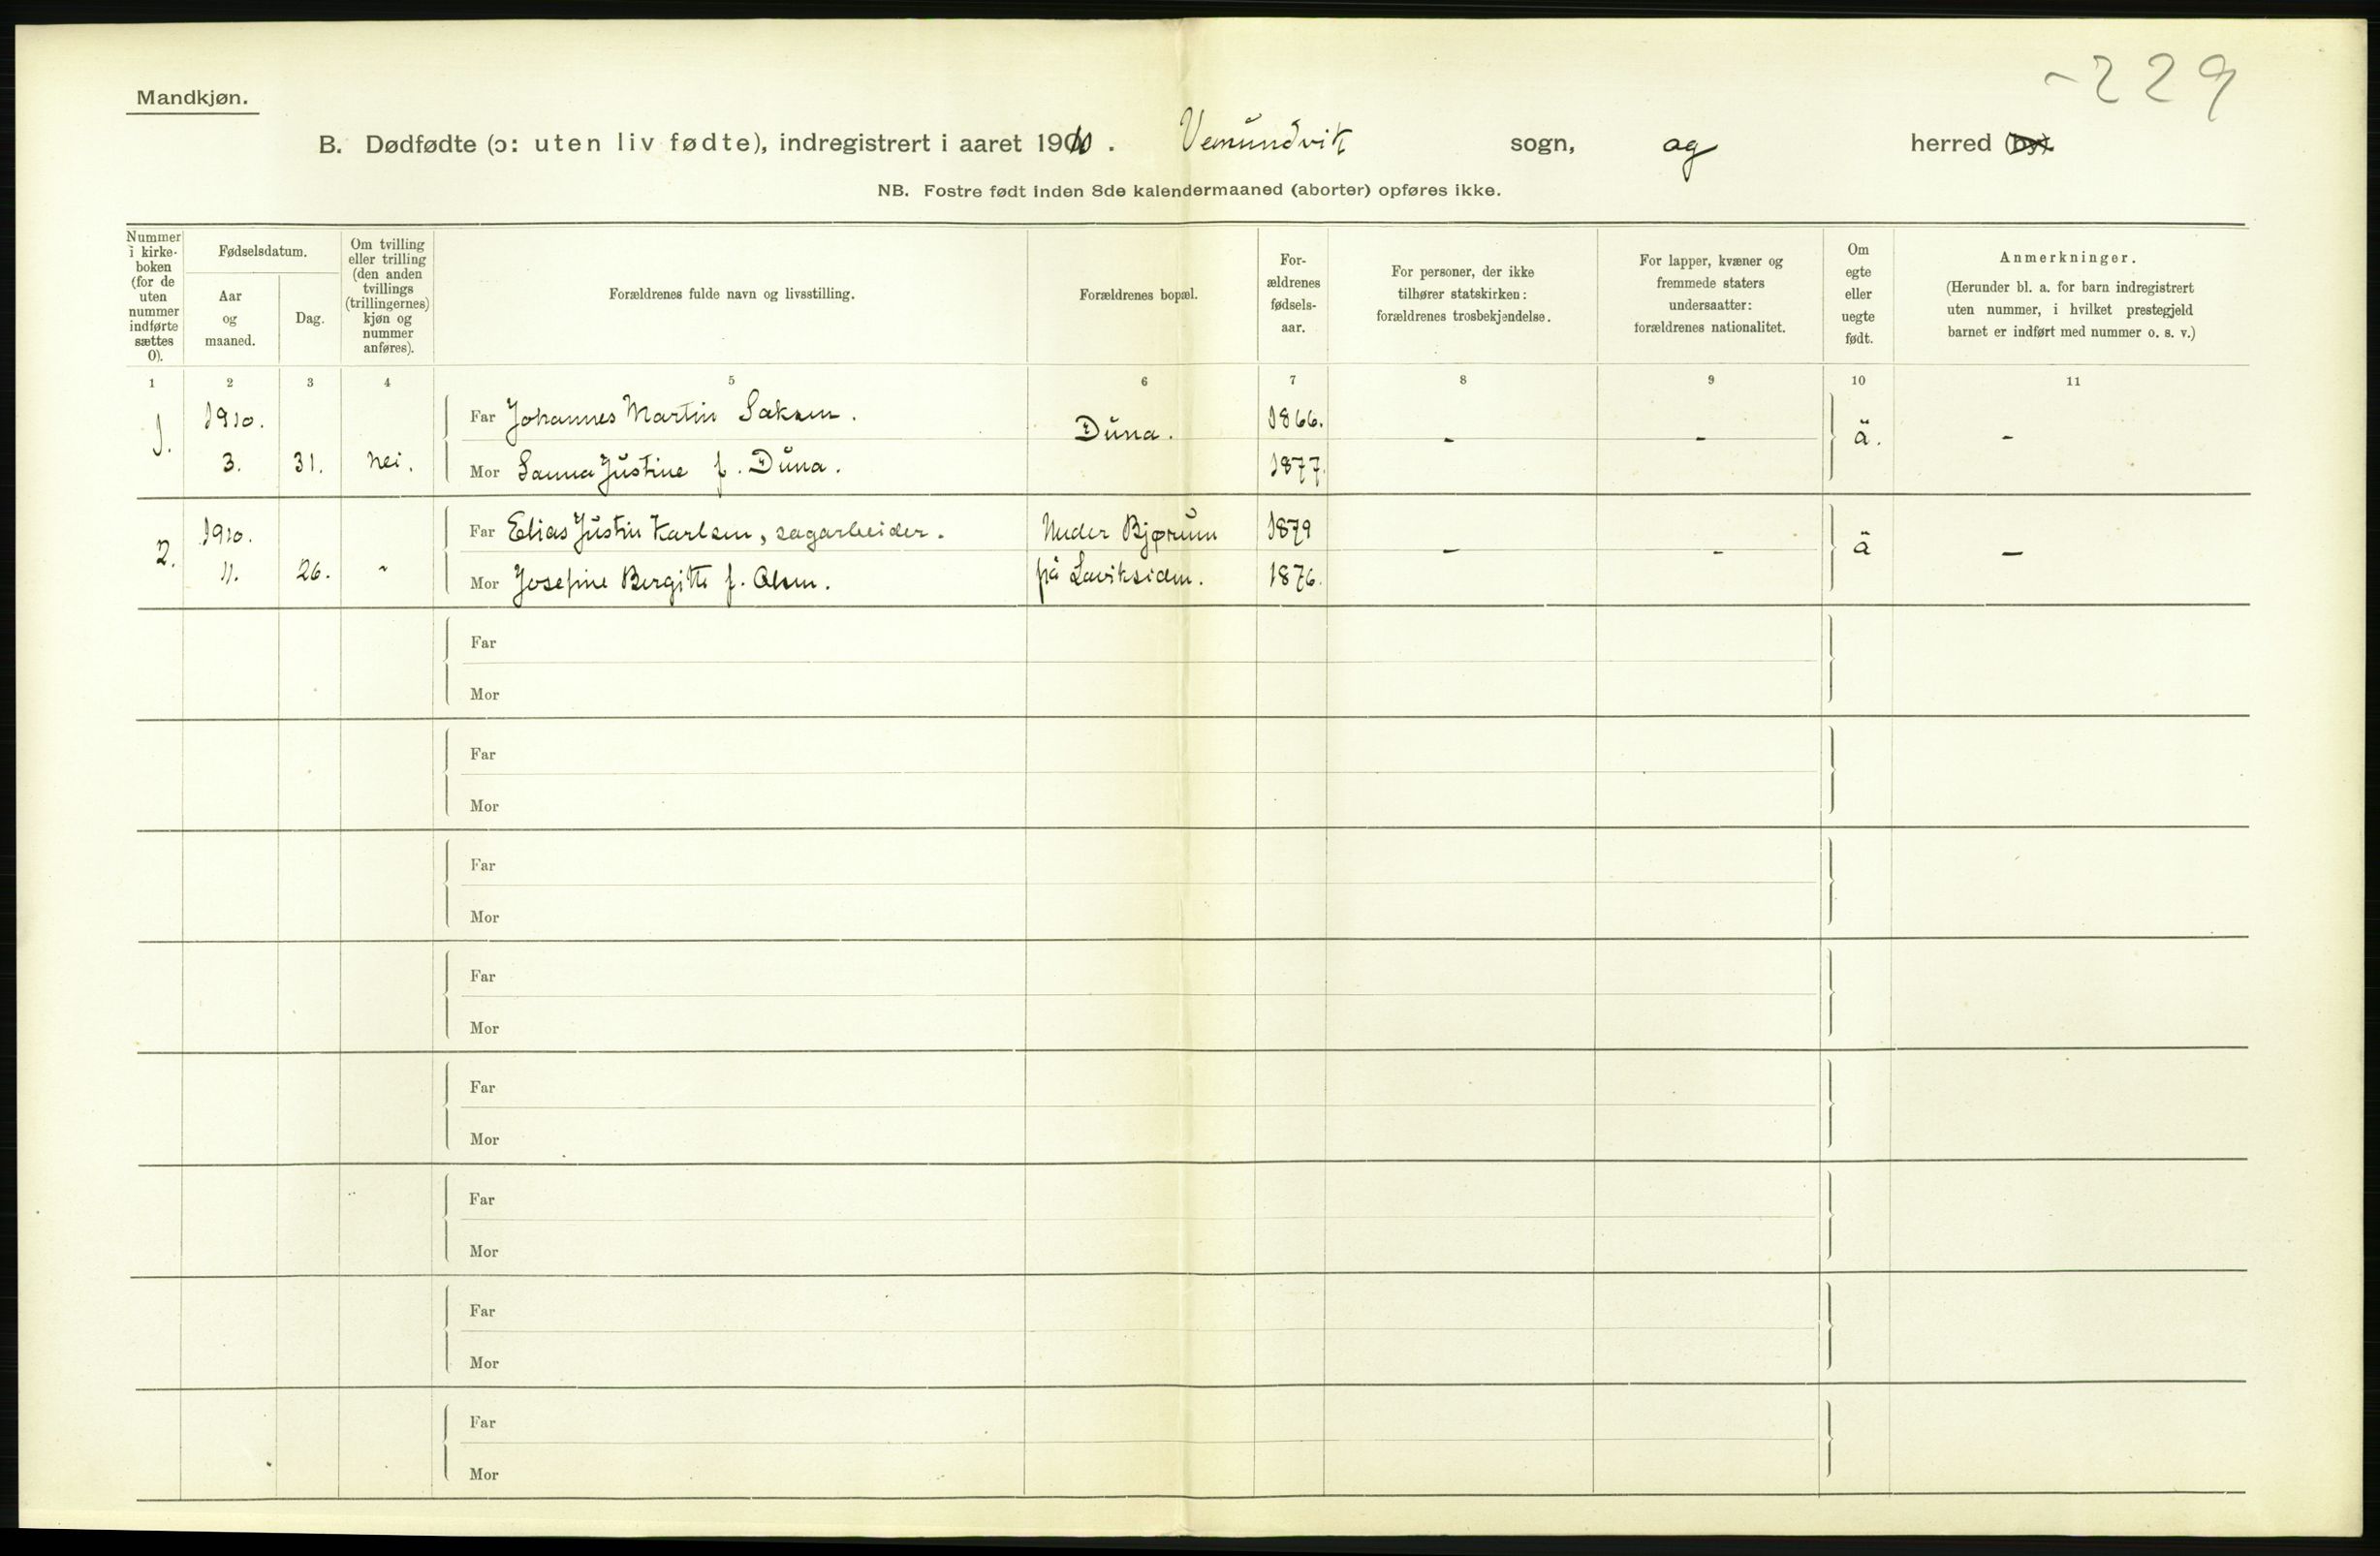 -229
Mandkjøn.
B. Dødfødte (ɔ: uten liv fødte), indregistrert i aaret 1910. Vemundvik sogn, og herred (by).
NB. Fostre født inden 8de kalendermaaned (aborter) opføres ikke.
Nummer i kirke-boken (for de uten nummer indførte sættes 0).
Fødselsdatum.
Aar og maaned.
Dag.
Om tvilling eller trilling (den anden tvillings (trillingernes) kjøn og nummer anføres).
Forældrenes fulde navn og livsstilling.
Forældrenes bopæl.
For-ældrenes fødsels-aar.
For personer, der ikke tilhører statskirken: forældrenes trosbekjendelse.
For lapper, kvæner og fremmede staters undersaatter: forældrenes nationalitet.
Om egte eller uegte født.
Anmerkninger.
(Herunder bl. a. for barn indregistrert uten nummer, i hvilket prestegjeld barnet er indført med nummer o. s. v.)
1 2 3 4 5 6 7 8 9 10 11
1. 1910. 3. 31. nei.
Far Johannes Martin Saksen. Duna. 1866. - - ä. -
Mor Sanna Justine f. Duna. 1877.
2. 1910. 11. 26. "
Far Elias Justin Karlsen, sagarbeider. Neder Bjørum 1879 - - ä -
Mor Josefine Bergitte f. Olsen. på Laviksiden. 1876.
Far
Mor
Far
Mor
Far
Mor
Far
Mor
Far
Mor
Far
Mor
Far
Mor
Far
Mor